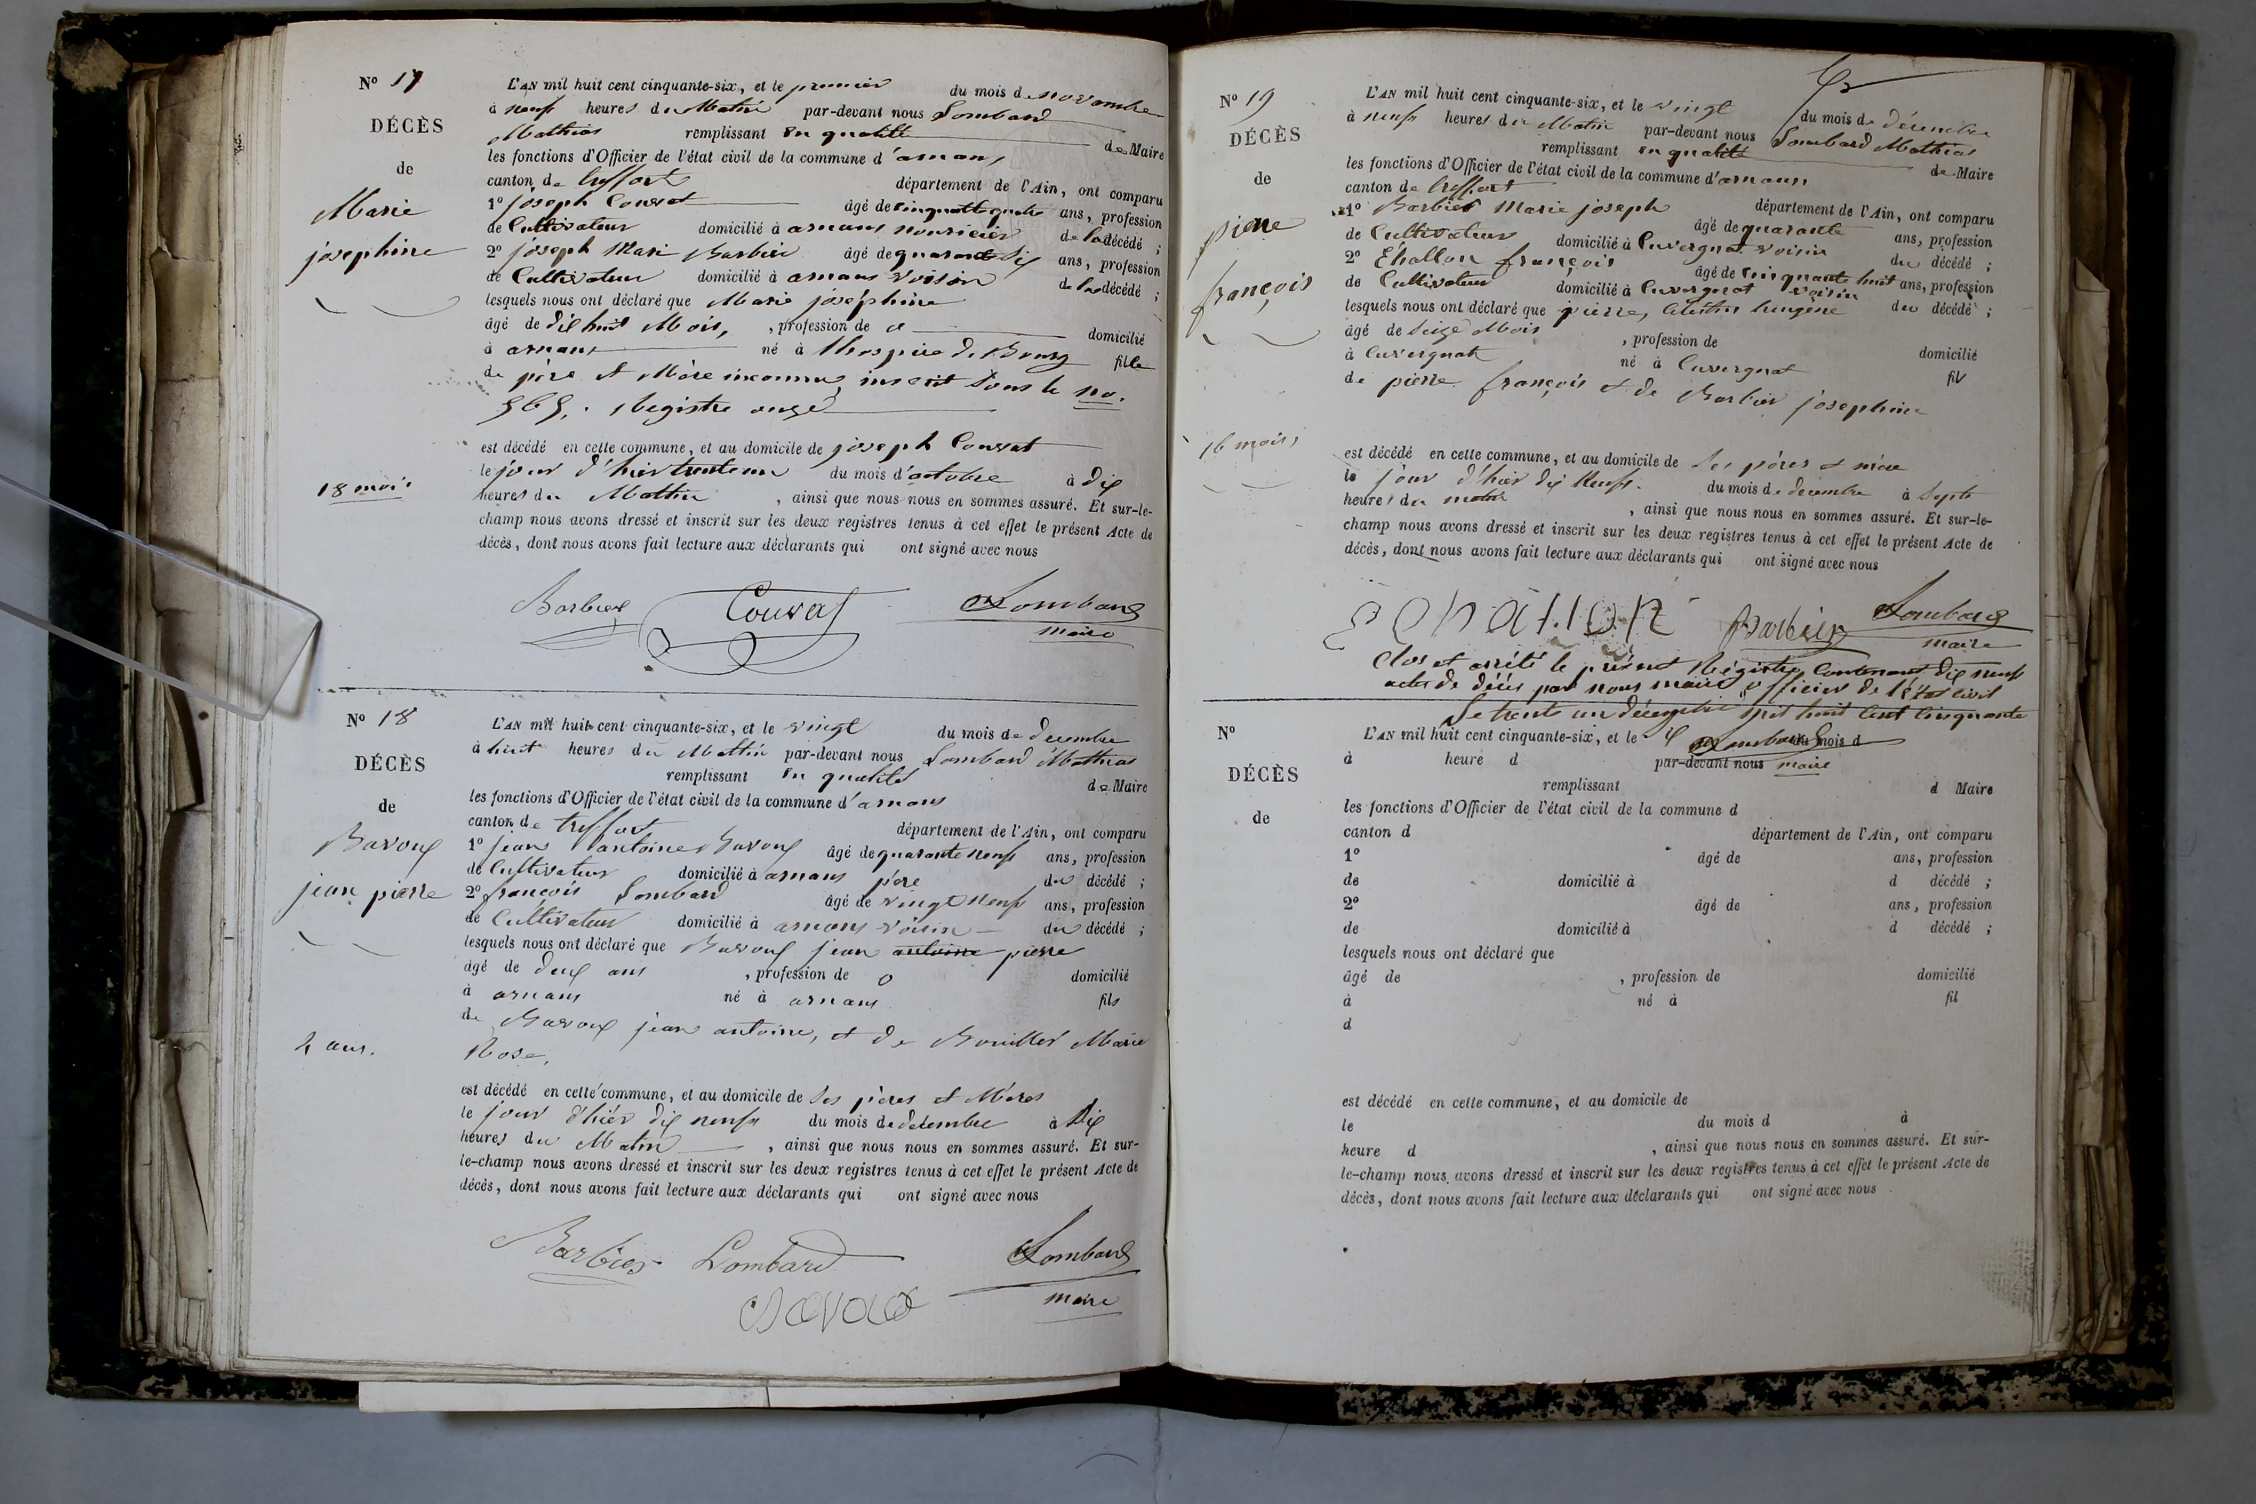 N° 17
DÉCÈS
de
Marie
josephine
18 mois
L'AN mil huit cent cinquante-six, et le premier du mois de novembre
à neuf heures du Matin par-devant nous Lombard
Mathias remplissant en qualité de Maire
les fonctions d'Officier de l'état civil de la commune d'arnans
canton de treffort département de l'Ain, ont comparu
1° joseph Couvat âgé de cinquante quatre ans, profession
de Cultivateur domicilié à arnans nouricier de la décédé ;
2° joseph Mari Barbier âgé de quarante Six ans, profession
de Cultivateur domicilié à arnans voisin de la décédé ;
lesquels nous ont déclaré que Marie joséphine
âgé de dix huit Mois, , profession de domicilié
à arnans né à lhospice de Bourg fille
de père et Mère inconnus, inscrit sous le no.
565. Registre onze
est décédé en cette commune, et au domicile de joseph Couvat
le jour d'hier trente un du mois d'octobre à dix
heures du Mattin , ainsi que nous nous en sommes assuré. Et sur-le-
champ nous avons dressé et inscrit sur les deux registres tenus à cet effet le présent Acte de
décès, dont nous avons fait lecture aux déclarants qui ont signé avec nous
Barbier Couvat Lombard
maire
N° 18
DÉCÈS
de
Bavoux
jean pierre
2 ans.
L'AN mil huit cent cinquante-six, et le vingt du mois de decembre
à huit heures du Mattin par-devant nous Lombard Mathias
remplissant en qualité de Maire
les fonctions d'Officier de l'état civil de la commune d'arnans
canton de treffort département de l'Ain, ont comparu
1° jean antoine Bavoux âgé de quarante neuf ans, profession
de Cultivateur domicilié à arnans père du décédé ;
2° françois Lombard âgé de vingt neuf ans, profession
de Cultivateur domicilié à arnans voisin du décédé ;
lesquels nous ont déclaré que Bavoux jean antoine pierre
âgé de deux ans , profession de 0 domicilié
à arnans né à arnans fils
de Bavoux jean antoine, et de Bouillet Marie
Rose,
est décédé en cette commune, et au domicile de Ses pères et Mères
le jour d'hier dix neuf du mois de decembre à Dix
heures du Matin , ainsi que nous nous en sommes assuré. Et sur-
le-champ nous avons dressé et inscrit sur les deux registres tenus à cet effet le présent Acte de
décès, dont nous avons fait lecture aux déclarants qui ont signé avec nous
Barbier Lombard Lombard
maire
N° 19
DÉCÈS
de
pierre
françois
16 mois,
L'AN mil huit cent cinquante-six, et le vingt du mois de décembre
à neuf heures du Matin par-devant nous Lombard Mathias
remplissant en qualité de Maire
les fonctions d'Officier de l'état civil de la commune d'arnans
canton de treffort département de l'Ain, ont comparu
1° Barbier Marie joseph âgé de quarante ans, profession
de Cultivateur domicilié à Cuvergnat voisin du décédé ;
2° Échallon françois âgé de cinquante huit ans, profession
de Cultivateur domicilié à Cuvergnat voisin du décédé ;
lesquels nous ont déclaré que pierre,
âgé de Seize Mois , profession de domicilié
à Cuvergnat né à Cuvergnat fil
de pierre françois et de Barbier josephine
est décédé en cette commune, et au domicile de Ses pères et mère
le jour d'hier dix Neuf. du mois de decembre à Sept
heures du matin , ainsi que nous nous en sommes assuré. Et sur-le-
champ nous avons dressé et inscrit sur les deux registres tenus à cet effet le présent Acte de
décès, dont nous avons fait lecture aux déclarants qui ont signé avec nous
Echallon Barbier Lombard
maire
Clos et arrêté le présent Régistre Contenant Dix neuf
actes de décès par nous maire officier de l'état civil
Le trente un décembre mil huit Cent Cinquante
N°
DÉCÈS
de
L'AN mil huit cent cinquante-six, et le Lombard du mois d
à heure d par-devant nous maire
remplissant d Maire
les fonctions d'Officier de l'état civil de la commune d
canton d département de l'Ain, ont comparu
1° âgé de ans, profession
de domicilié à d décédé ;
2° âgé de ans, profession
de domicilié à d décédé ;
lesquels nous ont déclaré que
âgé de , profession de domicilié
à né à fil
d
est décédé en cette commune, et au domicile de
le du mois d à
heure d , ainsi que nous nous en sommes assuré. Et sur-
le-champ nous avons dressé et inscrit sur les deux registres tenus à cet effet le présent Acte de
décès, dont nous avons fait lecture aux déclarants qui ont signé avec nous